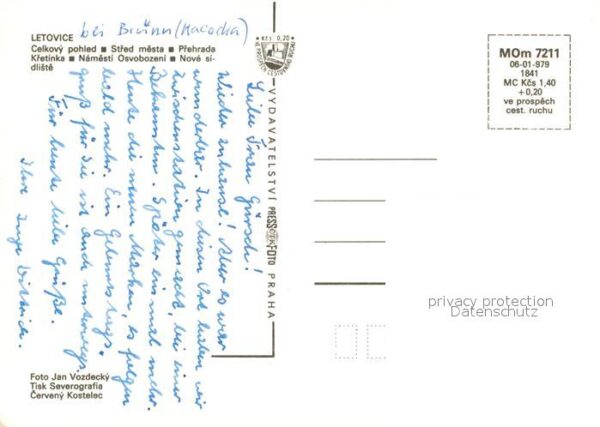 bei Brünn (Macocha)
LETOVICE
Celkový pohled ■ Střed města ■ Přehrada
Křetínka ■ Náměstí Osvobození ■ Nové sí-
dliště
Liebe Frau Görsch!
Wieder zuhause! Aber es war
wunderbar. In diesem Ort haben wir
Zwischenstation gemacht, bei einer
Bekannten. Später einmal mehr.
Heute die neuen Marken, es folgen
bald mehr. Ein
Gruß für Sie ist auch unterwegs.
Für heute liebe Grüße.
Ihre Inge Dittrich.
Foto Jan Vozdecký
Tisk Severografia
Červený Kostelec
KČS 0,20
VE PROSPĚCH CESTOVNÍHO RUCHU
VYDAVATELSTVÍ PRESSFOTO PRAHA
MOm 7211
06-01-979
1841
MC Kčs 1,40
+0,20
ve prospěch
cest. ruchu
privacy protection
Datenschutz